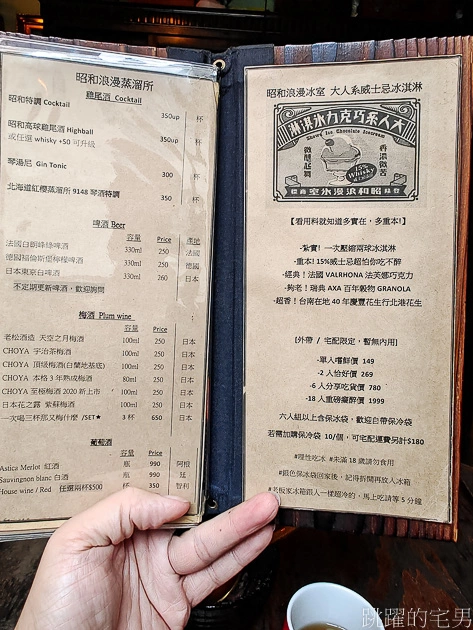 昭和浪漫蒸溜所
雞尾酒 Cocktail
昭和特調 Cocktail 350up 杯
昭和高球雞尾酒 Highball 350up 杯
或任選 whisky +50 可升級
琴湯尼 Gin Tonic 300 杯
北海道紅櫻蒸溜所 9148 琴酒特調 350 杯
啤酒 Beer
容量 Price 產地
法國白朗峰綠啤酒 330ml 250 法國
德國福倫斯堡檸檬啤酒 330ml 250 德國
日本東京白啤酒 330ml 260 日本
不定期更新啤酒，歡迎詢問
梅酒 Plum wine
容量 Price
老松酒造 天空之月梅酒 100ml 250 日本
CHOYA 宇治茶梅酒 100ml 250 日本
CHOYA 頂級梅酒(白蘭地基底) 100ml 250 日本
CHOYA 本格 3 年熟成梅酒 80ml 250 日本
CHOYA 至極梅酒 2020 新上市 100ml 250 日本
日本花之露 紫蘇梅酒 100ml 250 日本
一次喝三杯那又梅什麼 /SET★ 3 杯 650 日本
葡萄酒
容量 Price
Astica Merlot 紅酒 瓶 990 阿根
Sauvingnon blanc 白酒 瓶 990 廷
House wine / Red 任選兩杯$500 杯 350 智利
昭和浪漫冰室 大人系威士忌冰淇淋
淋淇冰力克巧系人大
Showa Ice Chocolate Icecream
微醺越舞
香濃微苦
15% Whisky
商標
室冰漫浪和昭
登錄
【看用料就知道多實在，多重本!】
-紮實! 一次壓縮兩球冰淇淋
-重本! 15%威士忌超怕你吃不醉
-經典! 法國 VALRHONA 法芙娜巧克力
-夠老! 瑞典 AXA 百年穀物 GRANOLA
-超香! 台南在地 40 年慶豐花生行北港花生
[外帶 / 宅配限定，暫無內用]
-單人嚐鮮價 149
-2 人恰好價 269
-6 人分享吃貨價 780
-18 人重磅癮醉價 1999
六人組以上含保冰袋，歡迎自帶保冷袋
若需加購保冷袋 10/個，可宅配運費另計$180
#理性吃冰 #未滿 18 歲請勿食用
#銀色保冰袋回家後，記得拆開再放入冰箱
#老板家冰箱跟人一樣超冷的，馬上吃請等 5 分鐘
跳躍的宅男